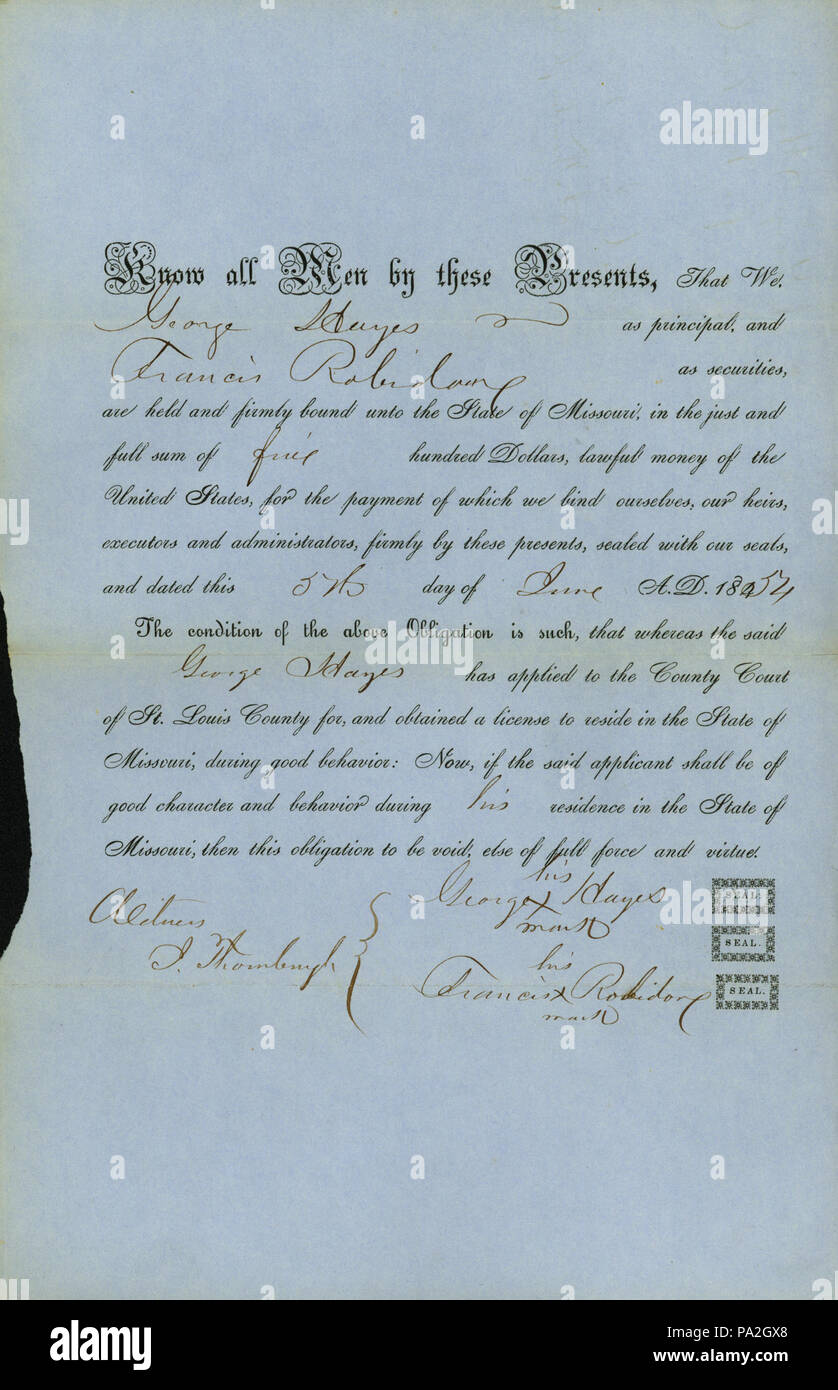 Know all Men by these Presents, That We.
George Hayes as principal, and
Francis Robidoux as securities,
are held and firmly bound unto the State of Missouri, in the just and
full sum of five hundred Dollars, lawful money of the
United States, for the payment of which we bind ourselves, our heirs,
executors and administrators, firmly by these presents, sealed with our seals,
and dated this 5th day of June A.D. 1854
The condition of the above Obligation is such, that whereas the said
George Hayes has applied to the County Court
of St. Louis County for, and obtained a license to reside in the State of
Missouri, during good behavior: Now, if the said applicant shall be of
good character and behavior during his residence in the State of
Missouri, then this obligation to be void, else of full force and virtue.
his
George x Hayes SEAL.
mark
Witness
SEAL.
J. Thornburgh
his
Francis x Robidoux SEAL.
mark
alamy
alamy stock photo
PA2GX8
www.alamy.com